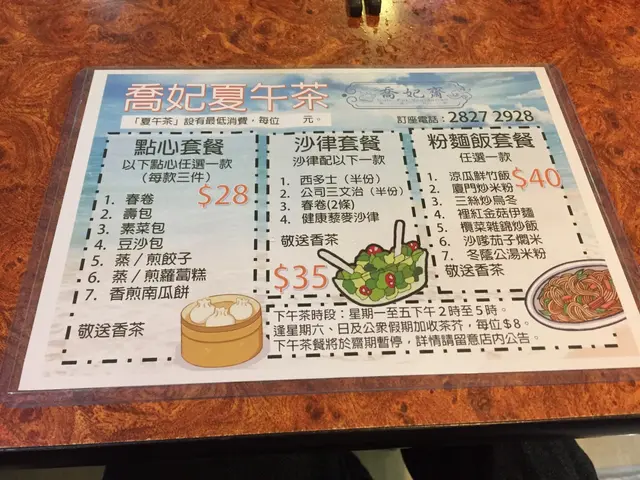 喬妃夏午茶
喬妃齋
「夏午茶」設有最低消費，每位 元。
訂座電話：2827 2928
點心套餐
以下點心任選一款
(每款三件)
$28
1. 春卷
2. 壽包
3. 素菜包
4. 豆沙包
5. 蒸/煎餃子
6. 蒸/煎蘿蔔糕
7. 香煎南瓜餅
敬送香茶
沙律套餐
沙律配以下一款
1. 西多士(半份)
2. 公司三文治(半份)
3. 春卷(2條)
4. 健康藜麥沙律
敬送香茶
$35
粉麵飯套餐
任選一款
$40
1. 涼瓜鮮竹飯
2. 廈門炒米粉
3. 三絲炒烏冬
4. 裡紅金菇伊麵
5. 欖菜雜錦炒飯
6. 沙嗲茄子燜米
7. 冬蔭公湯米粉
敬送香茶
下午茶時段：星期一至五下午2時至5時。
逢星期六、日及公眾假期加收茶芥，每位$8。
下午茶套餐將於齋期暫停，詳情請留意店內公告。